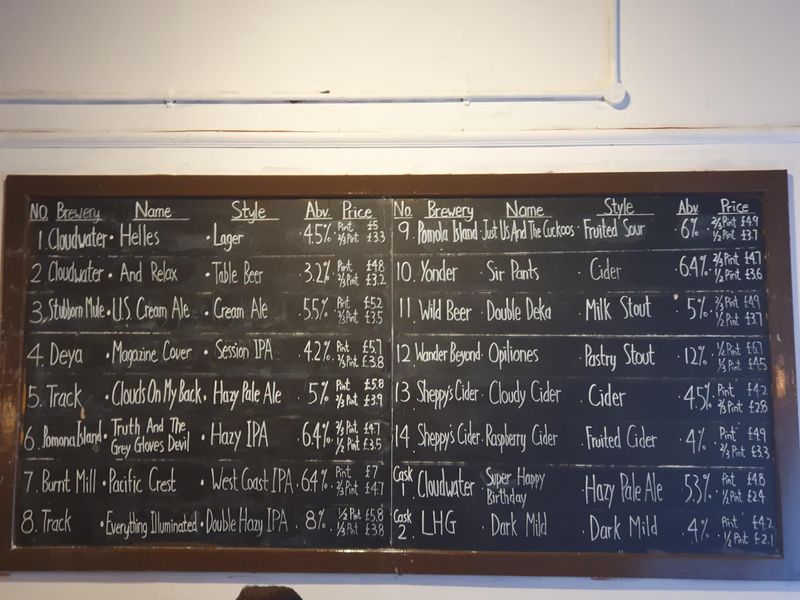 No. Brewery Name Style Abv Price
1. Cloudwater • Helles • Lager • 4.5% • Pint £5
2/3 Pint £3.3
2 Cloudwater • And Relax • Table Beer 3.2% Pint £4.8
2/3 Pint £3.2
3. Stubborn Mule • U.S. Cream Ale • Cream Ale 5.5% Pint £5.2
2/3 Pint £3.5
4. Deya • Magazine Cover • Session IPA 4.2% Pint £5.7
2/3 Pint £3.8
5. Track • Clouds On My Back • Hazy Pale Ale • 5% Pint £5.8
2/3 Pint £3.9
6. Pomona Island • Truth And The
Grey Gloves Devil • Hazy IPA 6.4% 2/3 Pint £4.7
1/2 Pint £3.5
7. Burnt Mill • Pacific Crest • West Coast IPA • 6.4% Pint £7
2/3 Pint £4.7
8. Track • Everything Illuminated • Double Hazy IPA • 8% • 1/2 Pint £5.8
1/3 Pint £3.8
No. Brewery Name Style Abv Price
9. Pomola Island • Just Us And The Cuckoos • Fruited Sour • 6% • 2/3 Pint £4.9
1/2 Pint £3.7
10. Yonder Sir Pants • Cider 6.4% • 2/3 Pint £4.7
1/2 Pint £3.6
11 Wild Beer • Double Deka • Milk Stout • 5% • 2/3 Pint £4.9
1/2 Pint £3.7
12 Wander Beyond • Opiliones • Pastry Stout • 12% • 1/2 Pint £6.7
1/3 Pint £4.5
13 Sheppy's Cider • Cloudy Cider • Cider 4.5% • Pint £4.2
2/3 Pint £2.8
14 Sheppy's Cider • Raspberry Cider • Fruited Cider • 4% • Pint £4.9
2/3 Pint £3.3
Cask
1 Cloudwater Super Happy
Birthday Hazy Pale Ale • 5.3% • Pint £4.8
1/2 Pint £2.4
Cask
2. LHG • Dark Mild • Dark Mild • 4% Pint £4.2
• 1/2 Pint £2.1